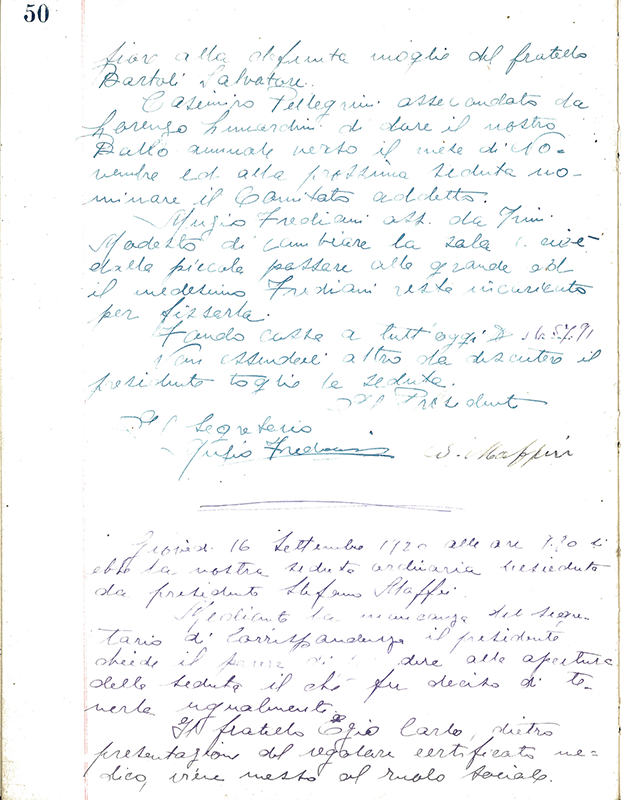 50
fior alla defunta moglie del fratello
Bartoli Salvatore.
Casimiro Pellegrini assecondato da
Lorenzo Lunardini di dare il nostro
Ballo annuale verso il mese di No-
vembre ed alla prossima seduta no-
minare il Comitato addetto.
Mugio Frediani ass. da
Modesto di cambiare la sala cioè
dalla piccola passare alla grande ed
il medesimo Frediani resta incaricato
per fissarla.
Fondo cassa a tutt'oggi
Non essendovi altro da discutere il
presidente toglie la seduta.
Il Presidente
Il Segretario
Mugio Frediani S. Maffei
Giovedi 16 Settembre 1920 alle ore 8.30 si
ebbe la nostra seduta ordinaria presieduta
da presidente Stefano Maffei.
Mediante la mancanza del segre-
tario di Corrispondenza il presidente
chiede il di alla apertura
della seduta il che fu deciso di te-
nerla ugualmente.
Il fratello Carlo, dietro
presentazione del regolare certificato me-
dico, viene messo al ruolo sociale.